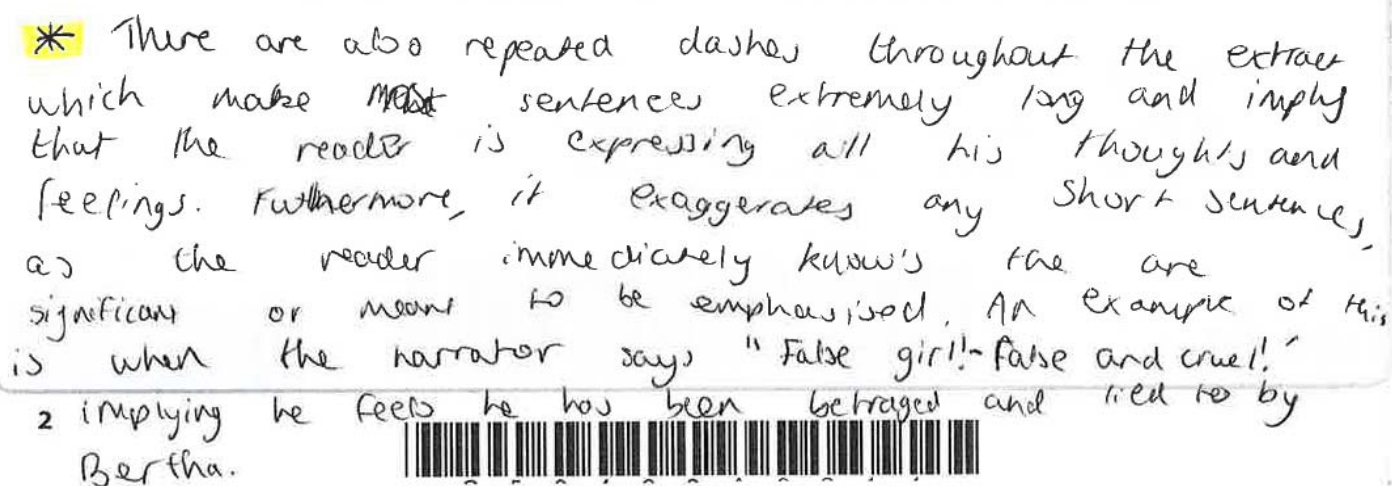 * There are also repeated dashes throughout the extract
which make sentences extremely long and imply
that the reader is expressing all his thoughts and
feelings. Furthermore, it exaggerates any short sentences,
as the reader immediately know's the are
significant or meant to be emphasised. An example of this
is when the narrator says "False girl!-false and cruel!"
2 implying he feels he has been betrayed and lied to by
Bertha.